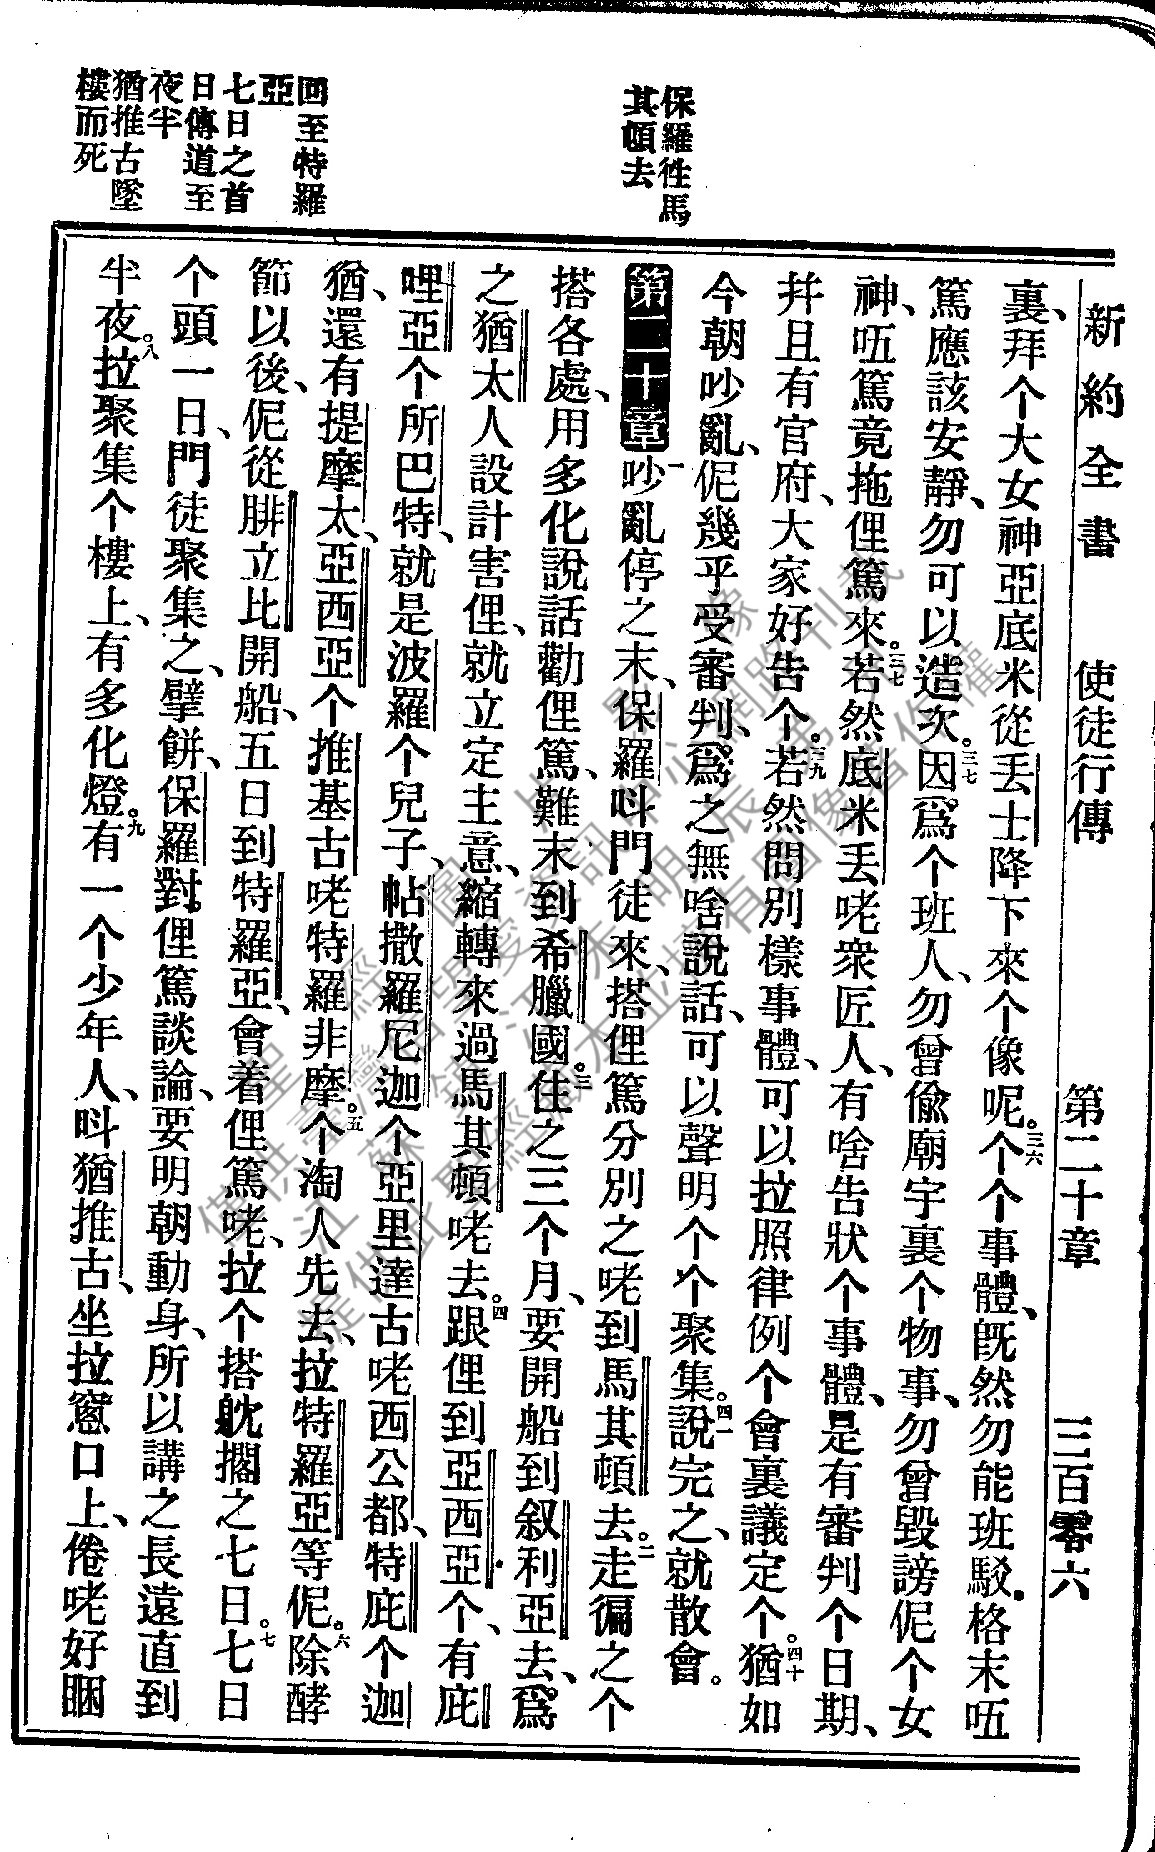 新約全書 使徒行傳 第二十章 三百零六
裏、拜个大女神亞底米從丢士降下來个像呢。三六个个事體、旣然勿能班駁。格末㕶
篤應該安靜、勿可以造次。三七因爲个班人、勿曾偸廟宇裏个物事、勿曾毀謗伲个女
神、㕶篤竟拖俚篤來。三八若然底米丢咾衆匠人、有啥告狀个事體、是有審判个日期、
幷且有官府、大家好告个。三九若然問別樣事體、可以拉照律例个會裏議定个。四十猶如
今朝吵亂、伲幾乎受審判、爲之無啥說話、可以聲明个个聚集。四一說完之、就散會。
第二十章 一吵亂停之末、保羅呌門徒來、搭俚篤分別之咾到馬其頓去。二走徧之个
搭各處、用多化說話勸俚篤、難末到希臘國。三住之三个月、要開船到叙利亞去、爲
之猶太人設計害俚、就立定主意、縮轉來過馬其頓咾去。四跟俚到亞西亞个、有庇
哩亞个所巴特、就是波羅个兒子、帖撒羅尼迦个亞里達古咾西公都、特庇个迦
猶、還有提摩太、亞西亞个推基古咾特羅非摩。五个淘人先去、拉特羅亞等伲。六除酵
節以後、伲從腓立比開船、五日到特羅亞、會着俚篤咾、拉个搭躭擱之七日。七七日
个頭一日、門徒聚集之、擘餅、保羅對俚篤談論、要明朝動身、所以講之長遠直到
半夜。八拉聚集个樓上、有多化燈。九有一个少年人、呌猶推古、坐拉窻口上、倦咾好睏
保羅徃馬
其頓去
回至特羅
亞
七日之首
日傳道至
夜半
猶推古墜
樓而死